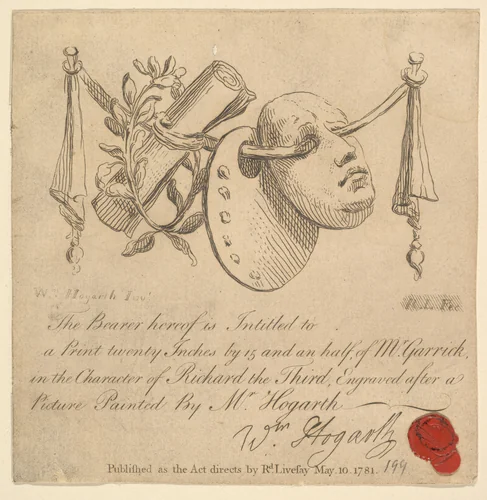 W. Hogarth Invᵗ
The Bearer hereof is Intitled to
a Print twenty Inches by 15 and an half, of Mʳ Garrick,
in the Character of Richard the Third, Engraved after a
Picture Painted By Mʳ Hogarth
Wᵐ Hogarth
Publish'd as the Act directs by Rᵈ. Livesay May. 10. 1781.
199